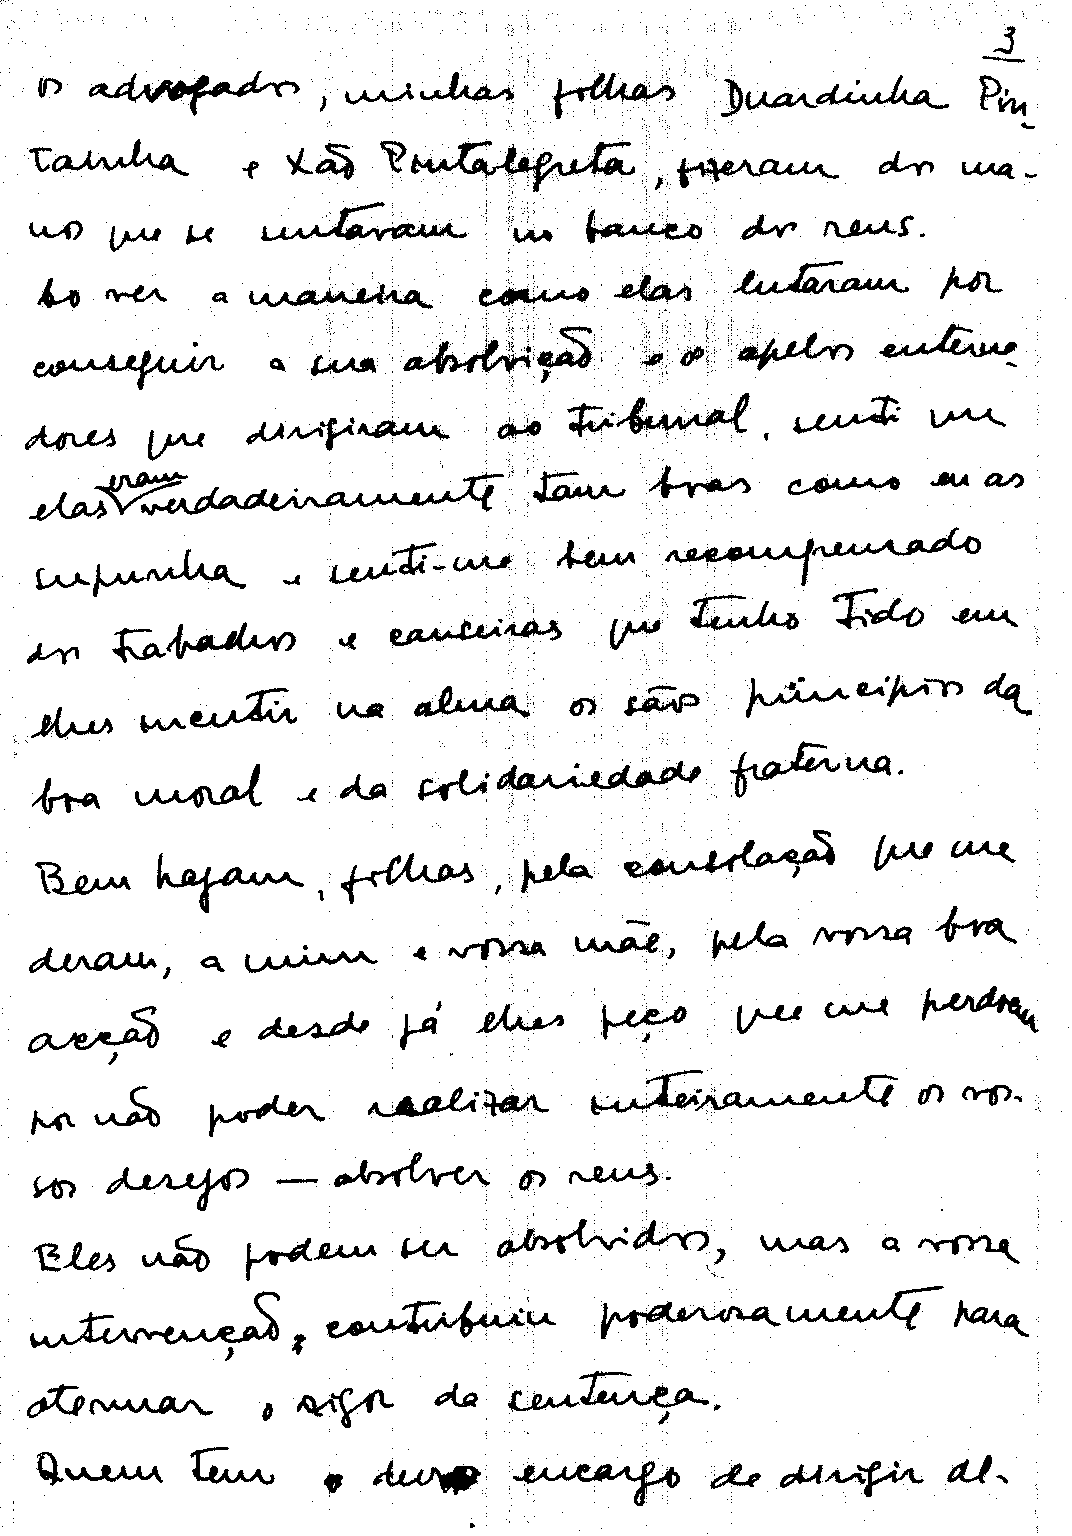 3
os advogados, minhas filhas Duardinha Pin-
tainha e Xão Pontalegreta, fizeram dos ma-
nos que se sentaram no banco dos reus.
Ao ver a maneira como elas lutaram por
conseguir a sua absolvição e os apelos enterne-
dores que dirigiram ao tribunal, senti que
elas eram verdadeiramente tam boas como eu as
supunha e senti-me bem recompensado
dos trabalhos e canseiras que tenho tido em
lhes incutir na alma os sãos principios da
boa moral e da solidariedade fraterna.
Bem hajam, filhas, pela consolação que me
deram, a mim e vossa mãe, pela vossa boa
acção e desde já lhes peço que me perdoem
por não poder realizar inteiramente os vos-
sos desejos — absolver os reus.
Eles não podem ser absolvidos, mas a vossa
intervenção, contribuiu poderosamente para
atenuar o rigor da sentença.
Quem tem o duro encargo de dirigir al-